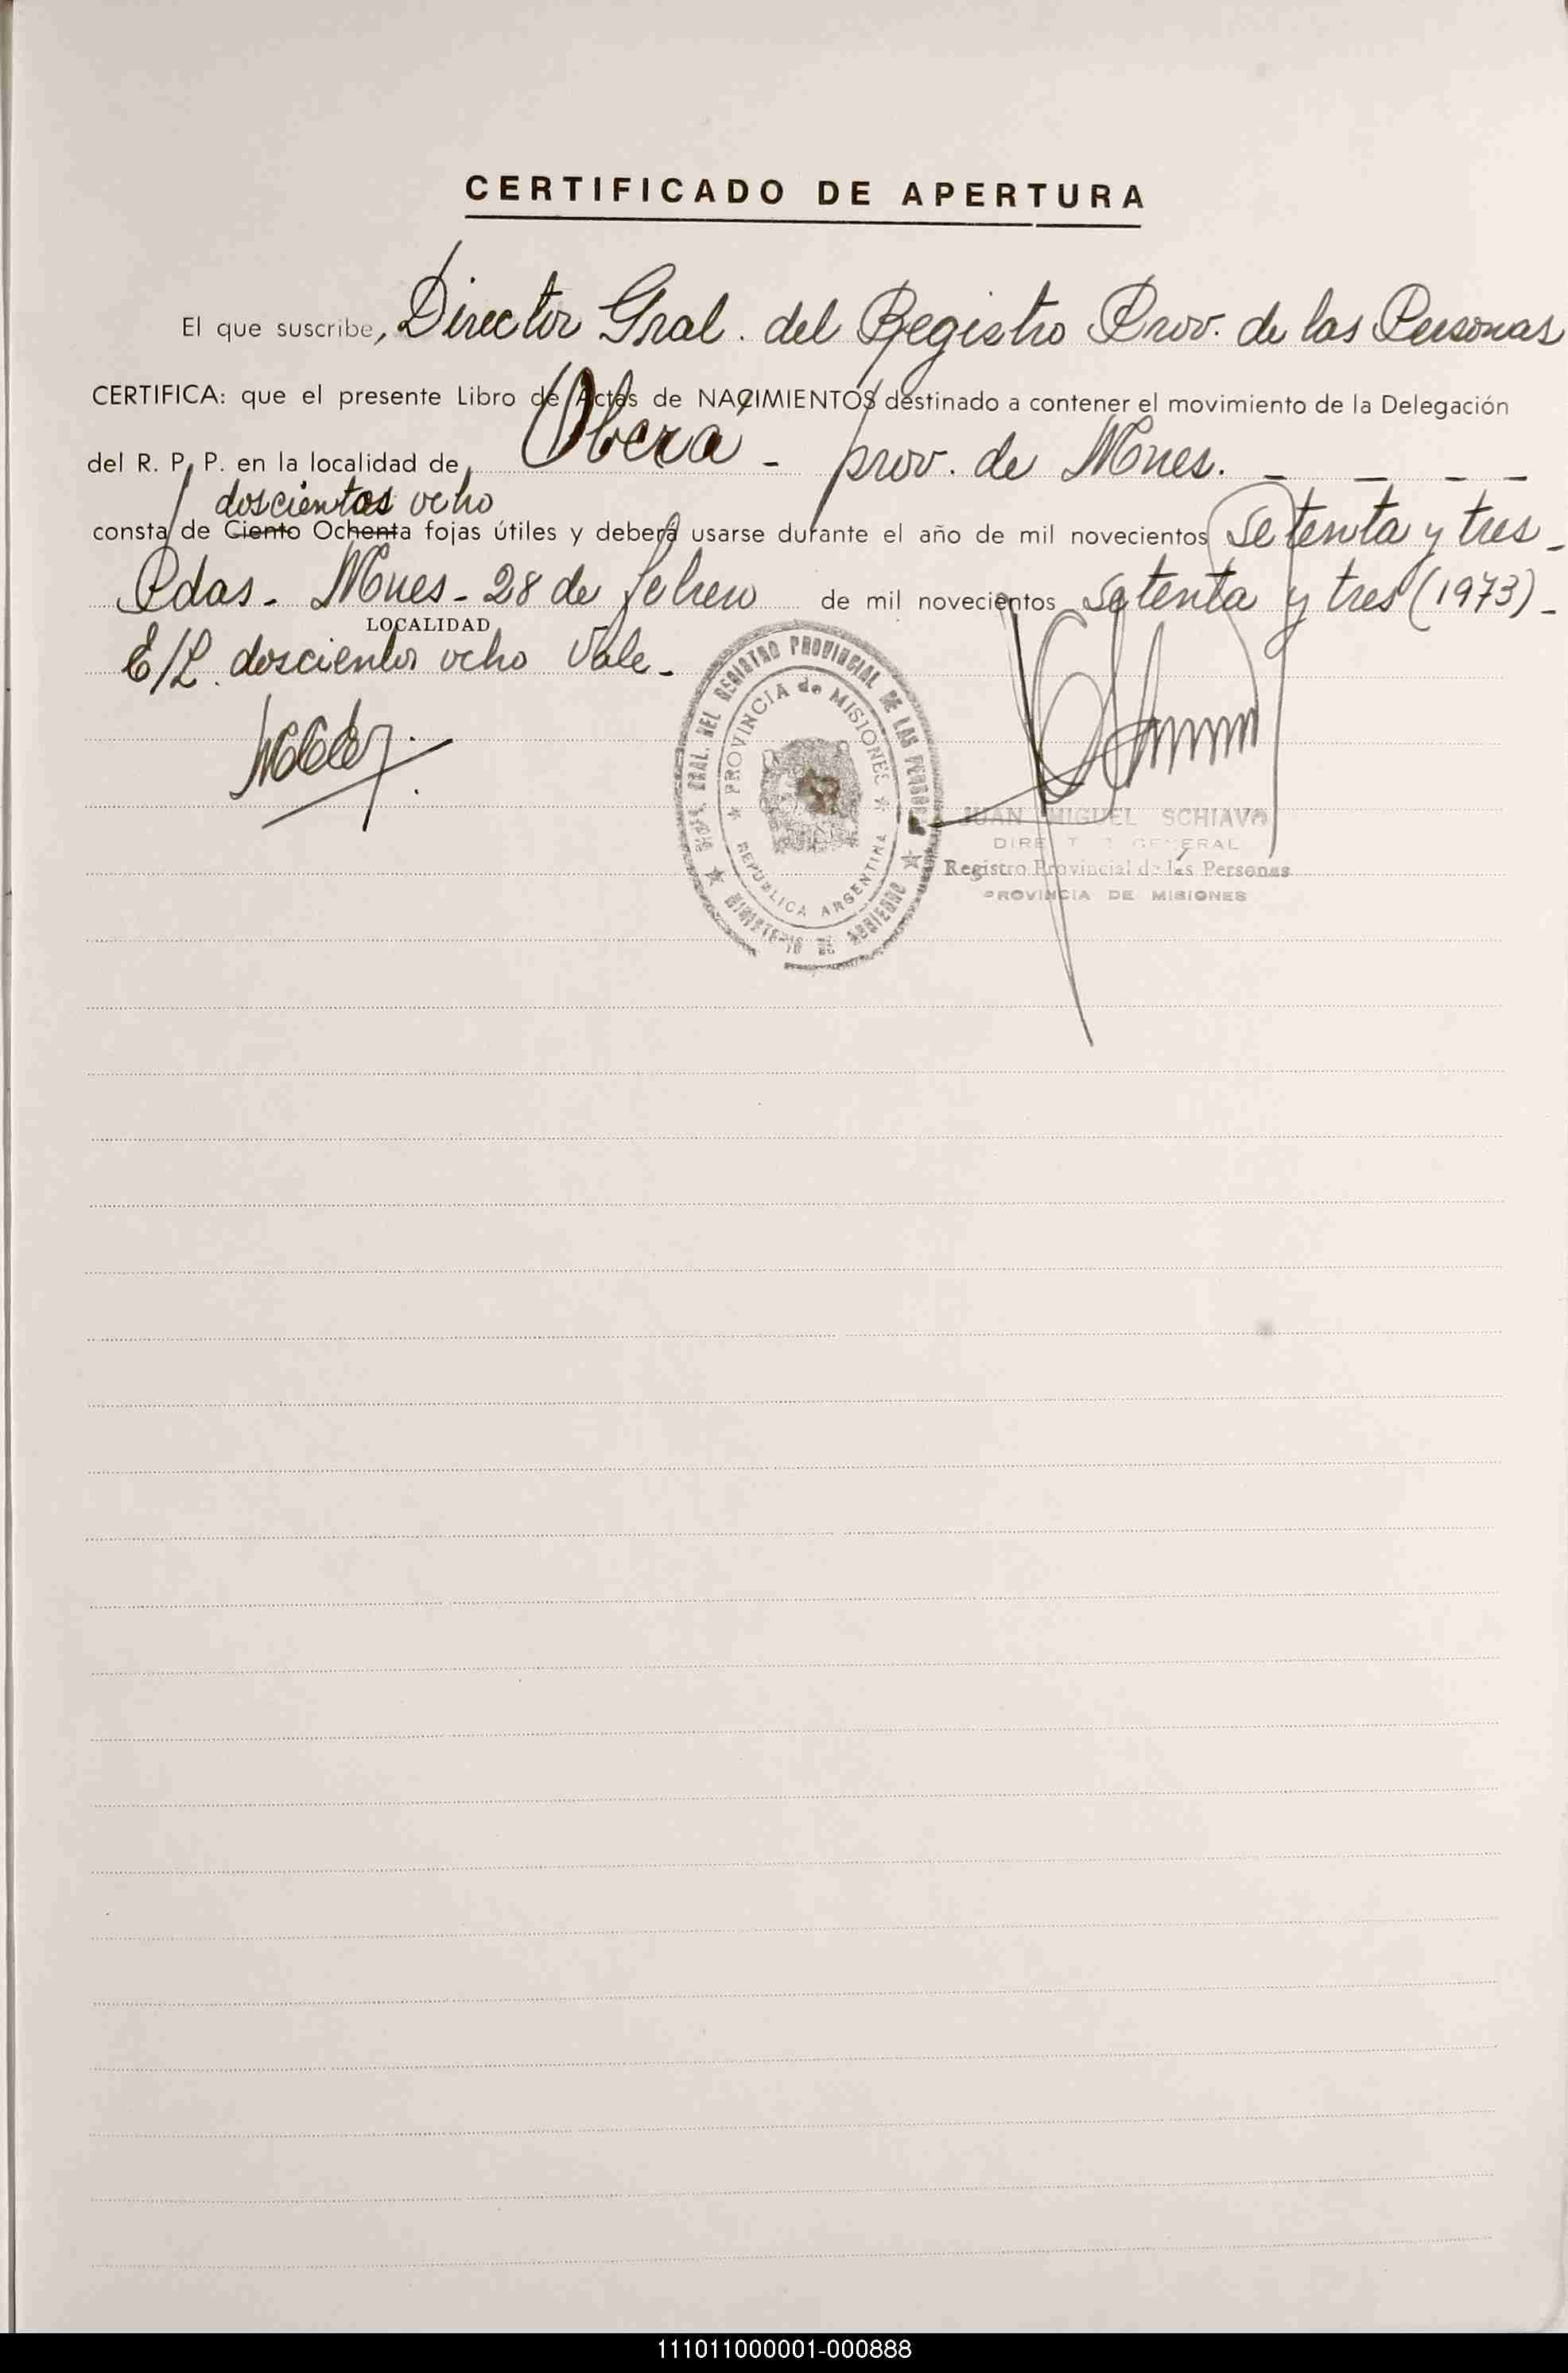 CERTIFICADO DE APERTURA
El que suscribe, Director Gral. del Registro Prov. de las Personas
CERTIFICA: que el presente Libro de Actas de NACIMIENTOS destinado a contener el movimiento de la Delegación
del R. P. P. en la localidad de Oberá - prov. de Mnes. - - - -
doscientos ocho
consta de Ciento Ochenta fojas útiles y deberá usarse durante el año de mil novecientos setenta y tres -
Pdas. Mnes - 28 de febrero de mil novecientos setenta y tres (1973) -
LOCALIDAD
E/L. doscientos ocho Vale -
DIRE. GRAL. DEL REGISTRO PROVINCIAL DE LAS PERSONAS
PROVINCIA de MISIONES
REPUBLICA ARGENTINA
MINISTERIO DE GOBIERNO
JUAN MIGUEL SCHIAVO
DIRECTOR GENERAL
Registro Provincial de las Personas
PROVINCIA DE MISIONES
111011000001-000888